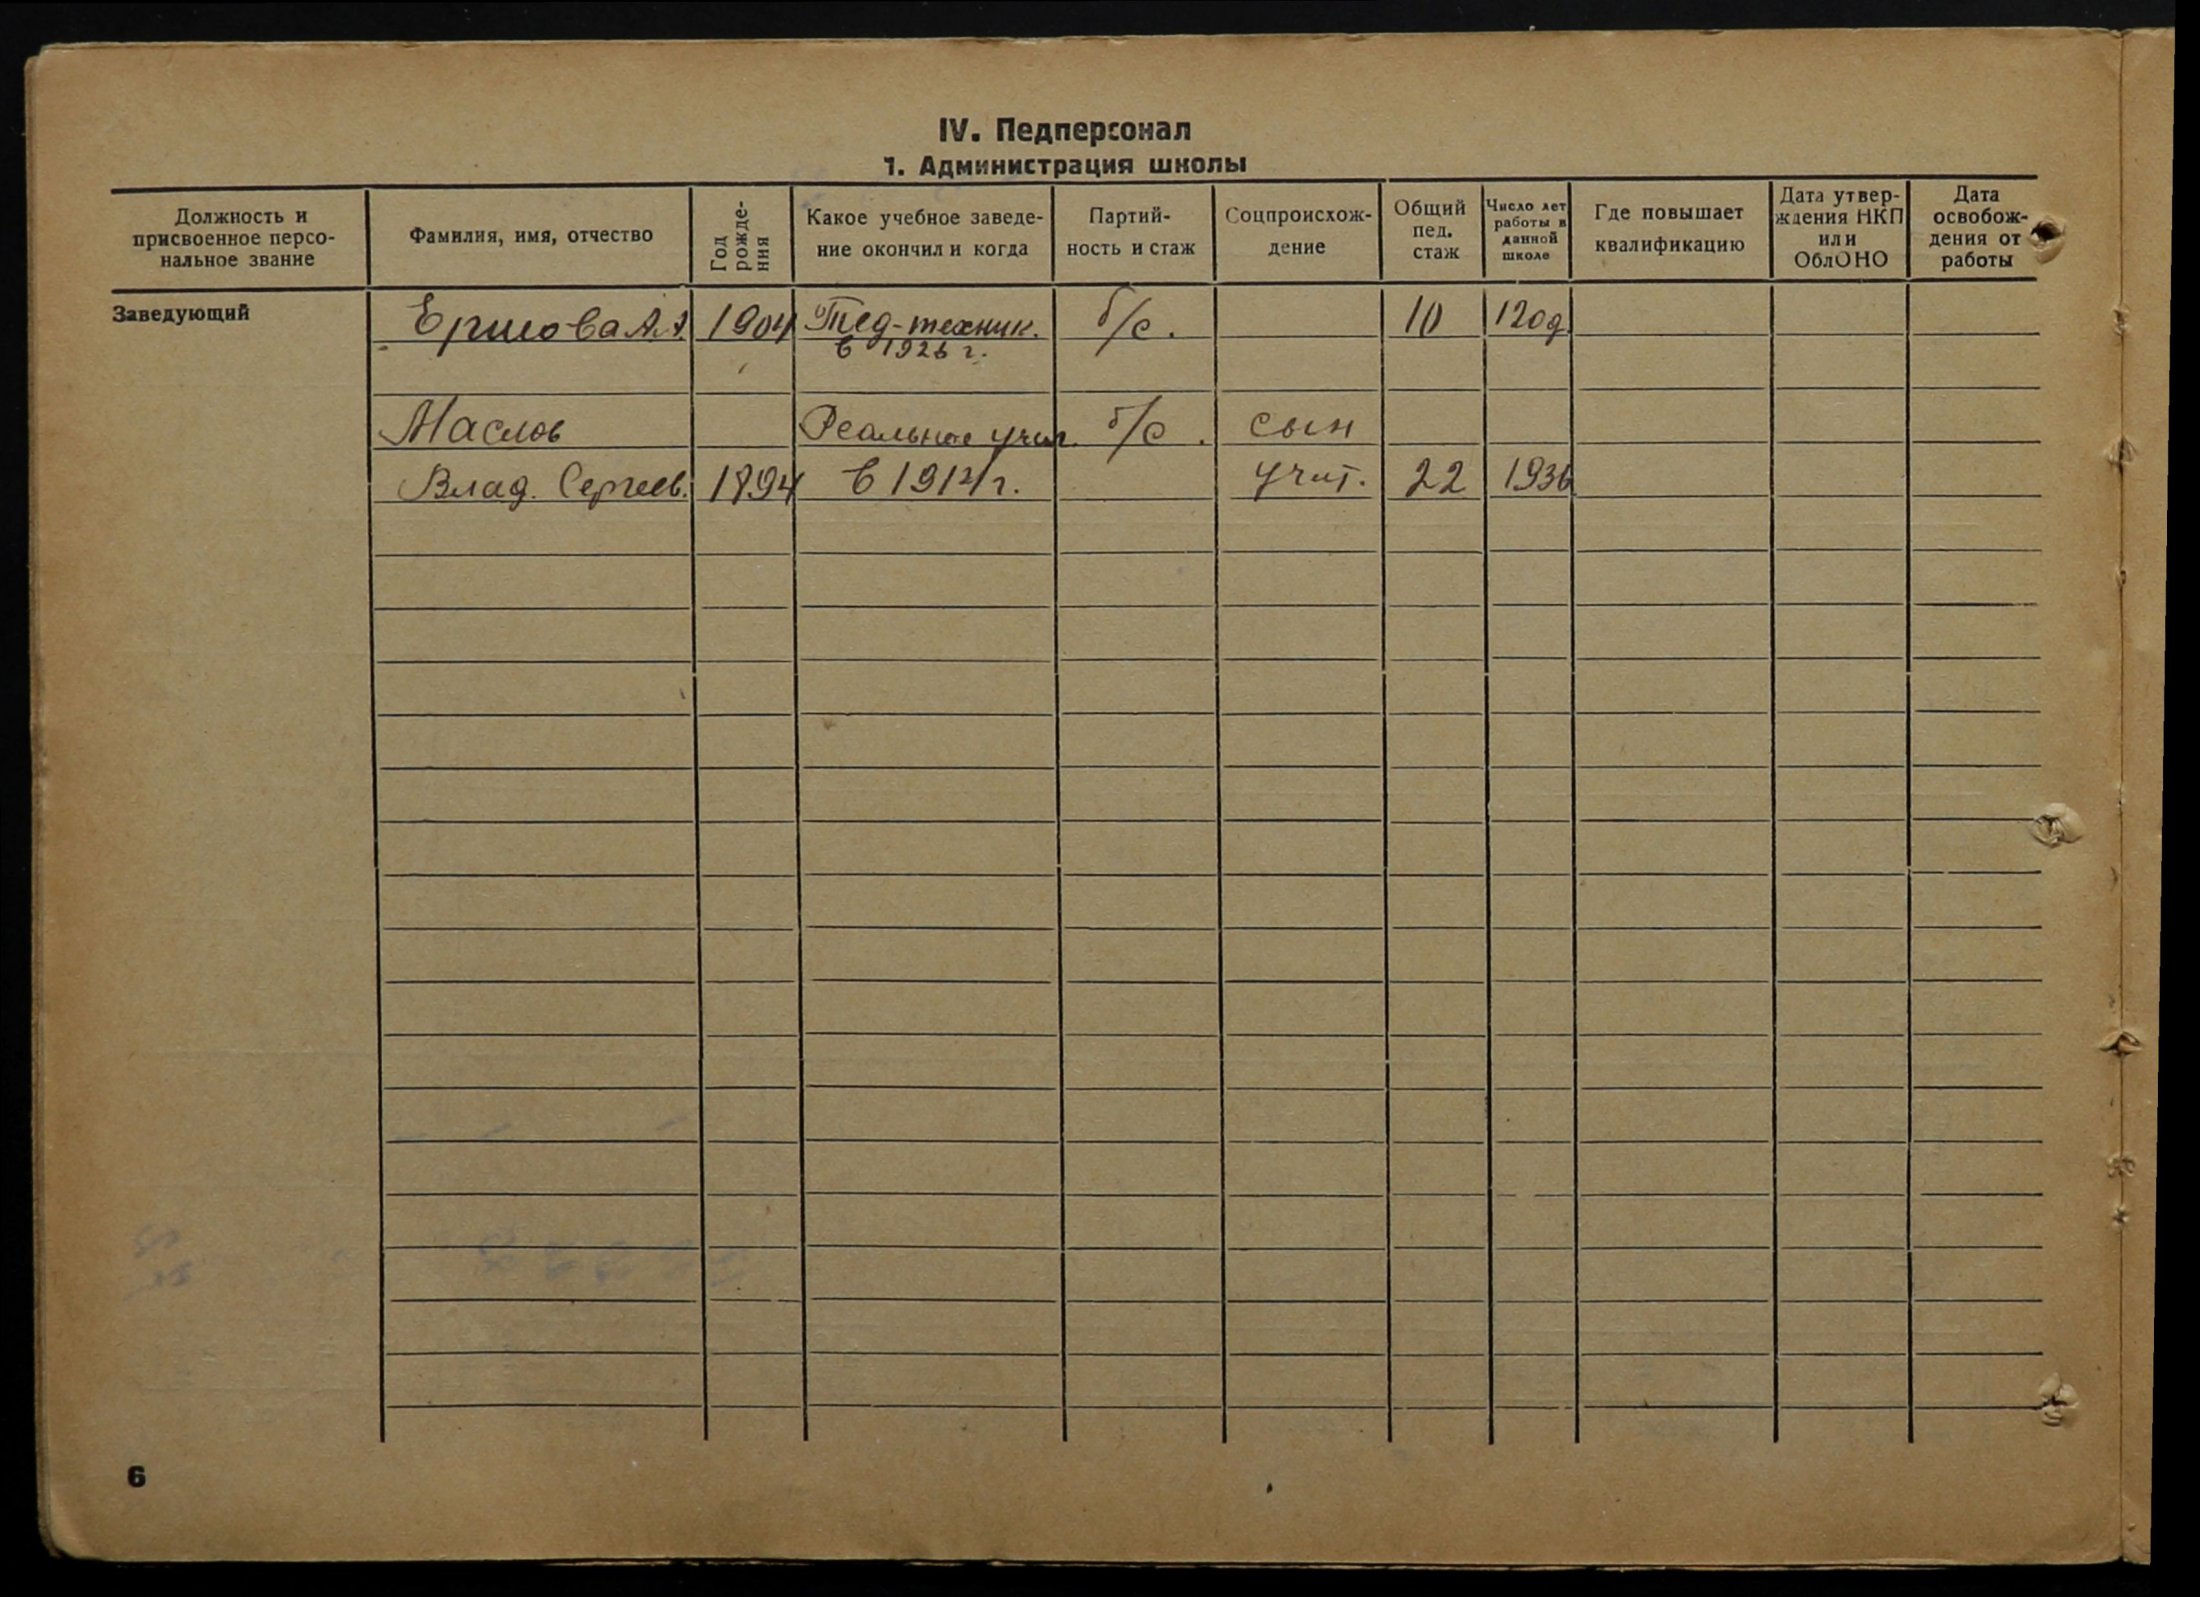 IV. Педперсонал
1. Администрация школы
Должность и присвоенное персо- нальное звание
Фамилия, имя, отчество
Год рожде- ния
Какое учебное заведе- ние окончил и когда
Партий- ность и стаж
Соцпроисхож- дение
Общий пед. стаж
Число лет работы в данной школе
Где повышает квалификацию
Дата утвер- ждения НКП или ОблОНО
Дата освобож- дения от работы
Заведующий Ершова А. 1904 Пед-техник. б/с. 10
в 1926 г.
Маслов Реальное учил. б/с. сын
Влад. Сергеев. 1894 в 1914 г. учит. 22 1936
6